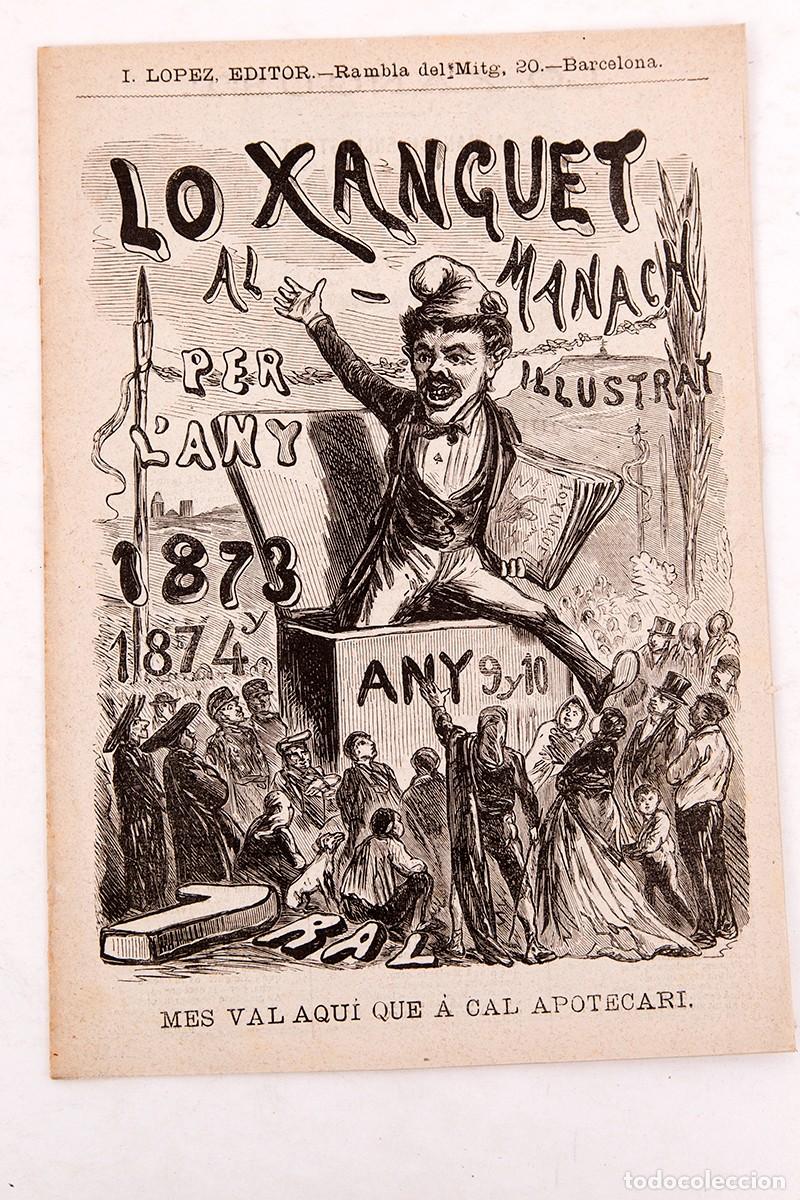 I. LOPEZ, EDITOR.—Rambla del Mitg, 20.—Barcelona.
LO XANGUET
AL-MANACH
PER ILLUSTRAT
L'ANY
1873
y
1874
LO XANGUET
ANY 9 y 10
1 RAL
MES VAL AQUÍ QUE Á CAL APOTECARI.
todocoleccion